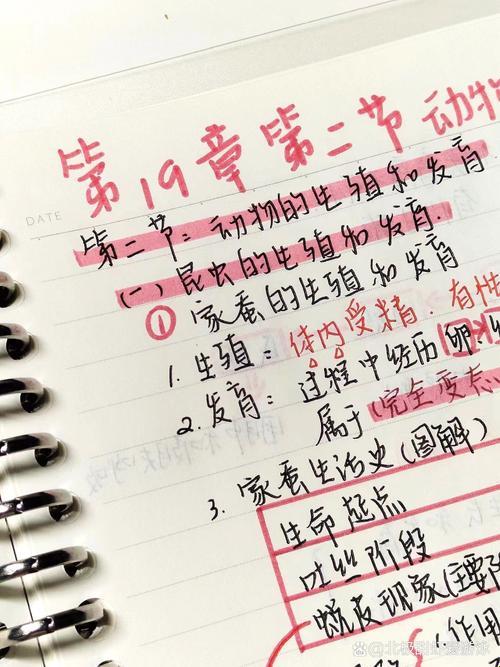 第19章第二节动物
DATE
第二节：动物的生殖和发育
(一)昆虫的生殖和发育.
①家蚕的生殖和发育
1.生殖：体内受精.有性
2.发育：过程中经历卵
属于(完全变态
3.家蚕生活史(图解)
生命起点
吐丝阶段
蜕皮现象(主要
作用